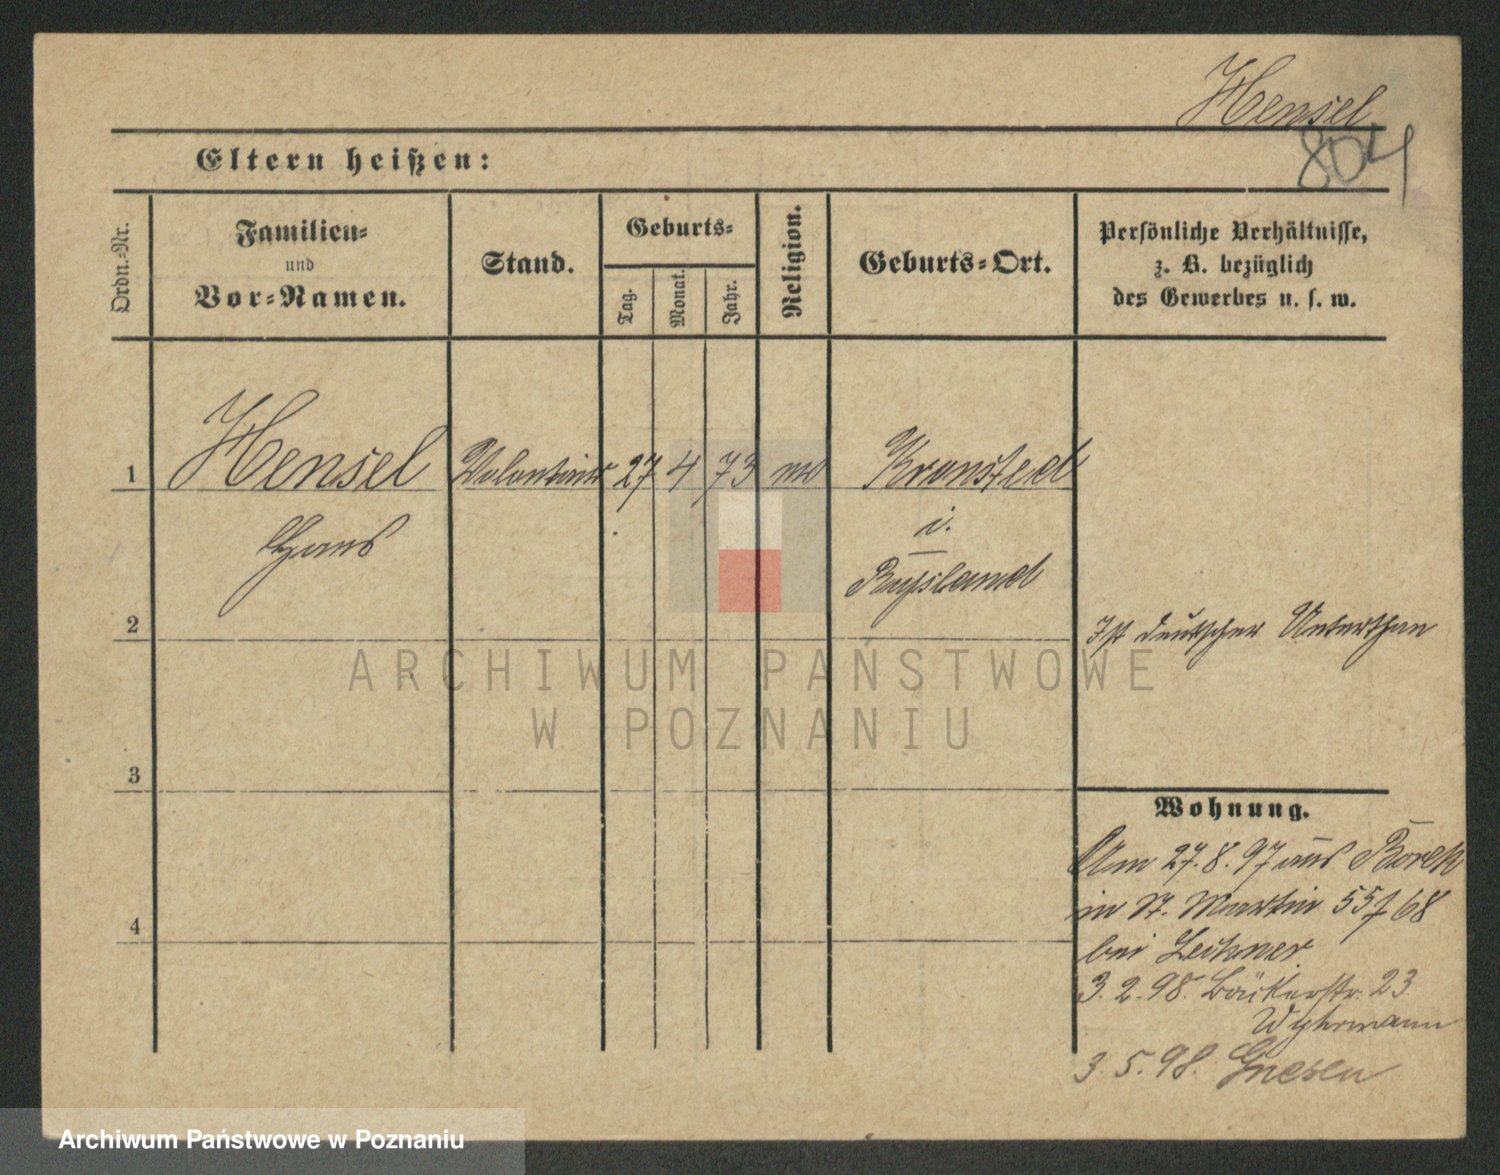 Hensel
804
Eltern heißen:
Ordn.-Nr.
Familien-
und
Vor-Namen.
Stand.
Geburts-
Tag.
Monat.
Jahr.
Religion.
Geburts-Ort.
Persönliche Verhältnisse,
z. B. bezüglich
des Gewerbes u. s. w.
1 Hensel Volontair 27 4 73 Kronstedt
Hans
i.
Russland
2
Ist deutscher Unterthan
ARCHIWUM PAŃSTWOWE
W POZNANIU
3
Wohnung.
Am 27.8.97 aus Borek
in St. Martin 55/68
bei Zeckner
4
3.2.98. Bäckerstr. 23
3.5.98. Gnesen
Archiwum Państwowe w Poznaniu